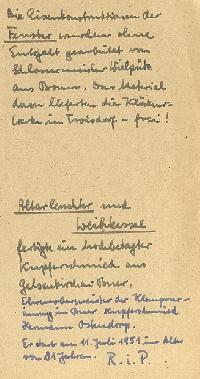 Die Eisenkonstruktionen der
Fenster wurden ohne
Entgelt gearbeitet von
Schlossermeister Wielpütz
aus Bonn. Das Material
dazu lieferten die Klöckner-
werke in Troisdorf – frei!
Altarleuchter und
Weihkessel
fertigte ein hochbetagter
Kupferschmied aus
Gelsenkirchen Buer.
Ehrenobermeister der Klempner-
innung in Buer Kupferschmied
Hermann Ostendorp.
Er starb am 11. Juli 1951 im Alter
von 81 Jahren. R. i. P.